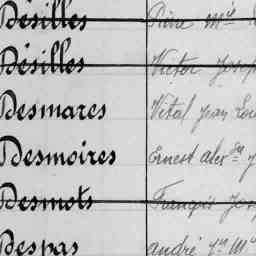 Désilles Pierre Mie
Désilles Victor Joseph
Desmares Vital Jean Lou
Desmoires Ernest alexdre
Desmots François Jos
Despas andré jn M